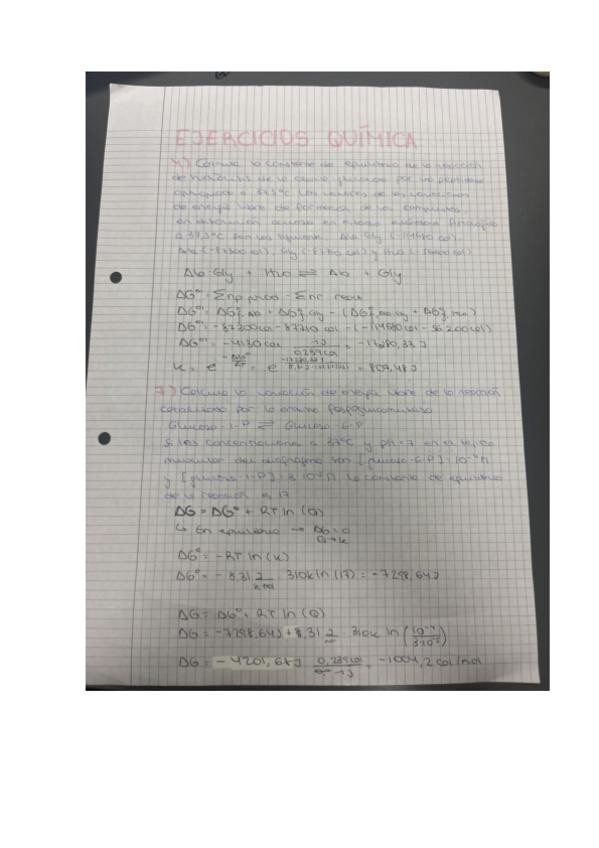 EJERCICIOS QUÍMICA
4) Calcula la constante de equilibrio de la reacción
de hidrólisis de la por una peptidasa
a 37,5ºC. Los valores de las variaciones
de energía libre de formación de los compuestos
en disolución acuosa en
a 37,5ºC son los siguientes: Ala-Gly (-114680 cal),
Ala (-87300 cal), Gly (-87710 cal) y H2O (-56200 cal)
Ala-Gly + H2O ⇌ Ala + Gly
ΔGº' = Σnp prod - Σnr react
ΔGº' = ΔGºf, Ala + ΔGºf, Gly - (ΔGºf, Ala-Gly + ΔGºf, H2O)
ΔGº' = -87300 cal - 87710 cal - (-114680 cal - 56200 cal)
ΔGº' = -4130 cal · 1J / 0.239 cal = -17280,33 J
K = e^(-ΔGº/RT) = = 809,48
7) Calcula la variación de energía libre de la reacción
catalizada por la enzima fosfoglucomutasa
Glucosa-1-P ⇌ Glucosa-6-P
si las concentraciones a 37ºC y pH=7 en el tejido
muscular del diafragma son [glucosa-6-P] = 10^-4 M
y [glucosa-1-P] = 3·10^-4 M. La constante de equilibrio
de la reacción es 17.
ΔG = ΔGº + RT ln (Q)
↳ En equilibrio → ΔG = 0
Q → K
ΔGº = -RT ln (K)
ΔGº = -8,31 J · 310K ln (17) = -7298,64 J
ΔG = ΔGº + RT ln (Q)
ΔG = -7298,64 J + 8,31 J · 310K ln (10^-4 / 3·10^-4)
ΔG = - 0,239 cal / 1 J = -1004,2 cal/mol